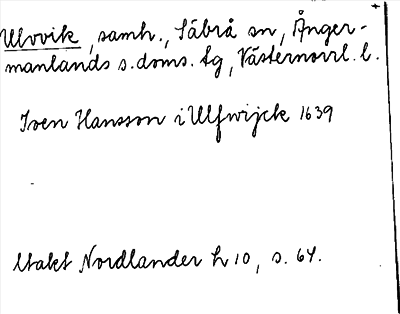 Ulvvik, samh., Säbrå sn, Ånger-
manlands s.doms. tg, Västernorrl. l.
Iven Hansson i Ulfwijck 1639
Utakt Nordlander h 10, s. 64.